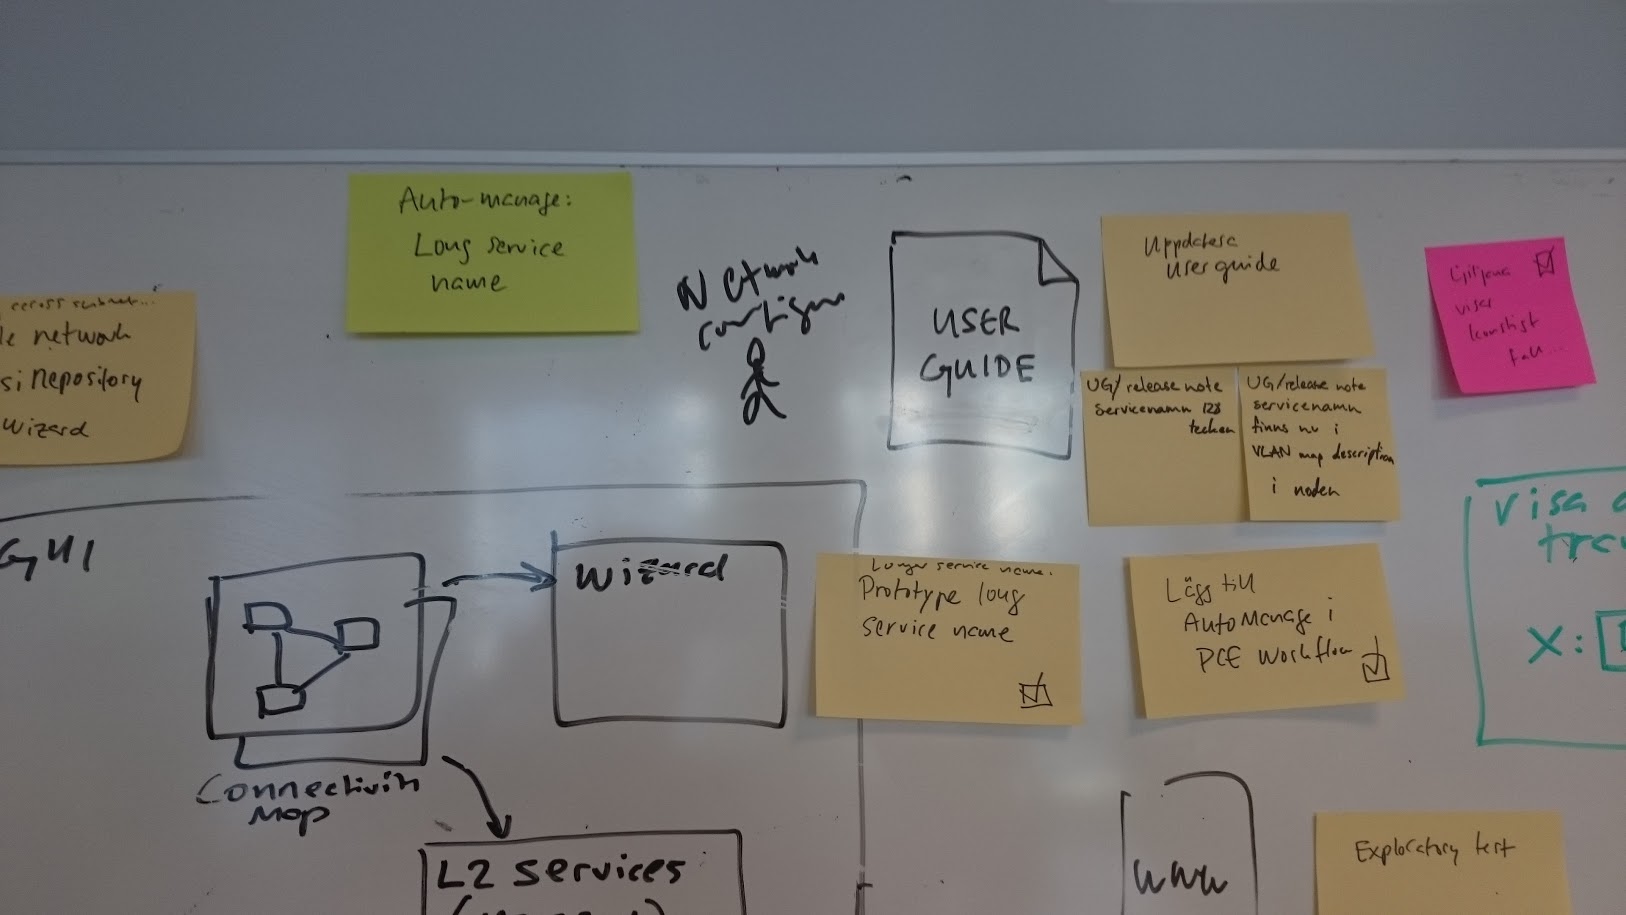 Auto-manage:
Long service
name
across subnet...
le network
si Repository
Wizard
Network
USER
GUIDE
Uppdatera
User guide
UG/release note
servicenamn 128
tecken
UG/release note
servicenamn
finns nu i
VLAN map description
i noden
viser
fall...
GUI
Wizard
Connectivity
Map
L2 services
Longer service name.
Prototype long
service name
Lägg till
AutoManage i
PCE Workflow
Visa
X:
www
Exploratory test